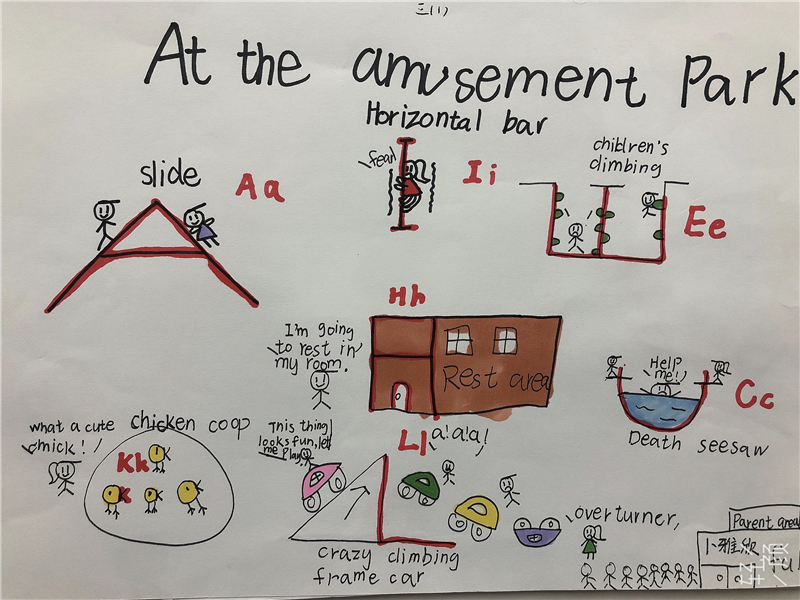 三(1)
At the amusement Park
Horizontal bar
fear
slide
Aa
Ii
children's
climbing
Ee
Hh
I'm going
to rest in
my room.
Rest area
Help
me!
Cc
Death seesaw
what a cute
chick!
chicken coop
Kk
K
This thing
looks fun, let
me play
Ll
a!a!a!
crazy climbing
frame car
overturner,
Parent area